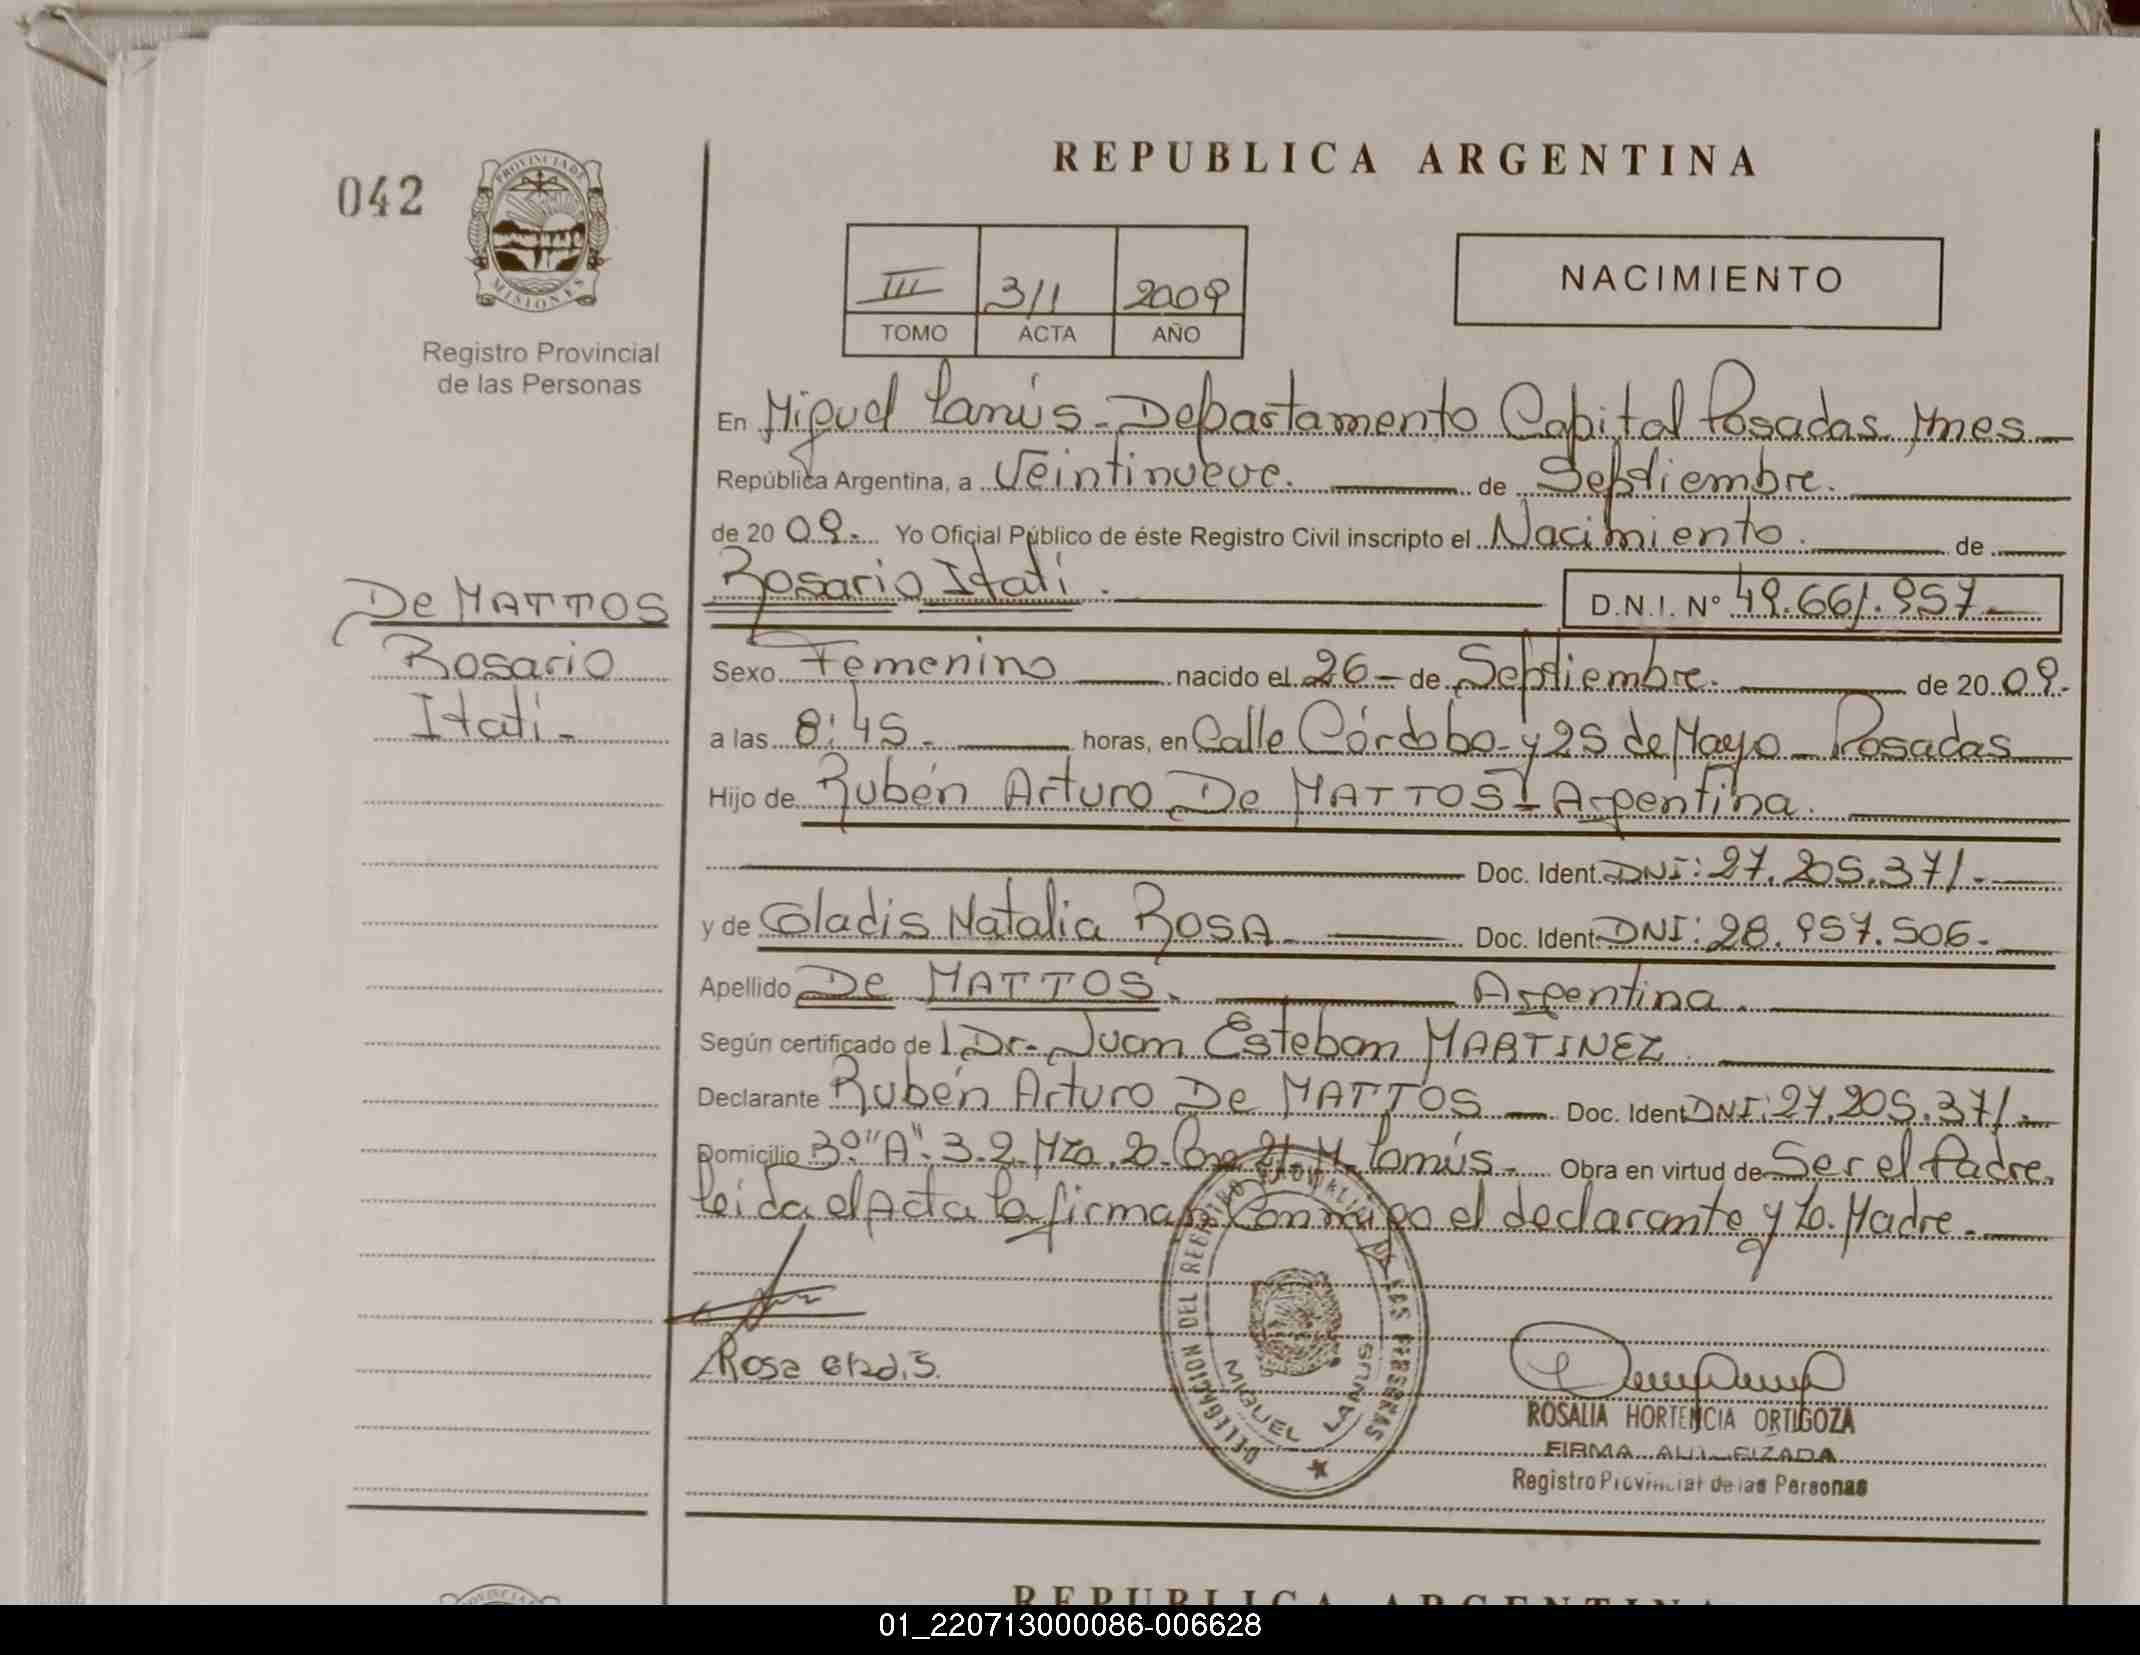 REPUBLICA ARGENTINA
042
PROVINCIA DE
MISIONES
Registro Provincial
de las Personas
III 311 2009
TOMO ACTA AÑO
NACIMIENTO
En Miguel Lanús - Departamento Capital Posadas Mnes
República Argentina, a Veintinueve. de Septiembre.
de 20 09.- Yo Oficial Público de éste Registro Civil inscripto el Nacimiento. de
Rosario Itatí. D.N.I. Nº 49.661.957
De MATTOS
Rosario
Itatí.-
Sexo Femenino nacido el 26 - de Septiembre. de 20 09.-
a las 8:45.- horas, en Calle Córdoba y 25 de Mayo - Posadas
Hijo de Rubén Arturo De MATTOS - Argentina.
Doc. Ident. DNI: 27.205.371.-
y de Gladis Natalia ROSA Doc. Ident. DNI: 28.957.506.-
Apellido De MATTOS. Argentina.
Según certificado de l Dr. Juan Esteban MARTINEZ
Declarante Rubén Arturo De MATTOS Doc. Ident. DNI: 27.205.371.-
Domicilio 3º "A". 3.2. Mza. 20. M. Lanús.- Obra en virtud de Ser el Padre.
leída el Acta la firman Conmigo el declarante y la Madre.-
Rosa Gladis.
DELEGACION DEL REGISTRO PROVINCIAL DE LAS PERSONAS
MIGUEL LANUS
ROSALIA HORTENCIA ORTIGOZA
FIRMA AUTORIZADA
Registro Provincial de las Personas
REPUBLICA ARGENTINA
01_220713000086-006628